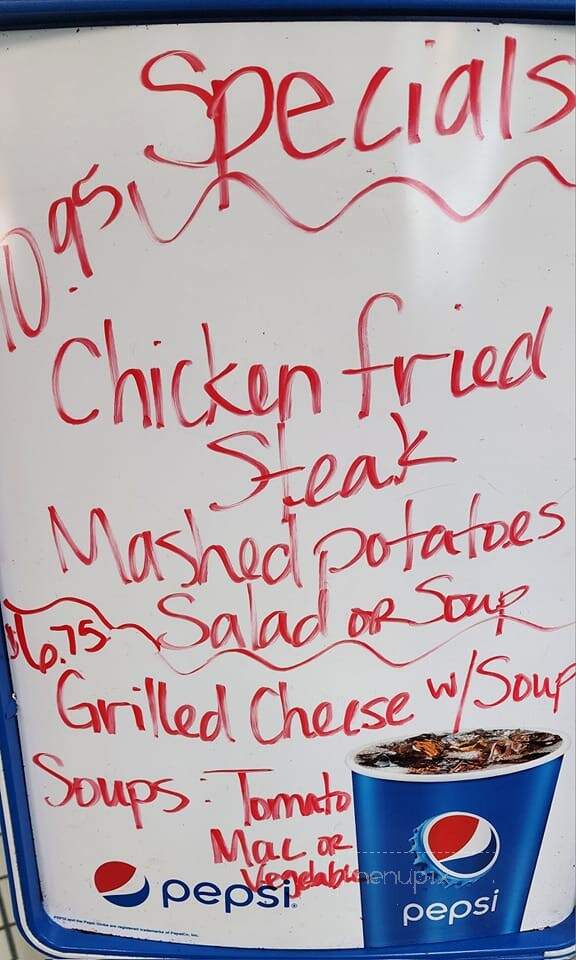 Specials
10.95
Chicken fried
Steak
Mashed potatoes
Salad or Soup
$6.75
Grilled Cheese w/ Soup
Soups: Tomato
Mac or
Vegetable
menupix
pepsi
pepsi